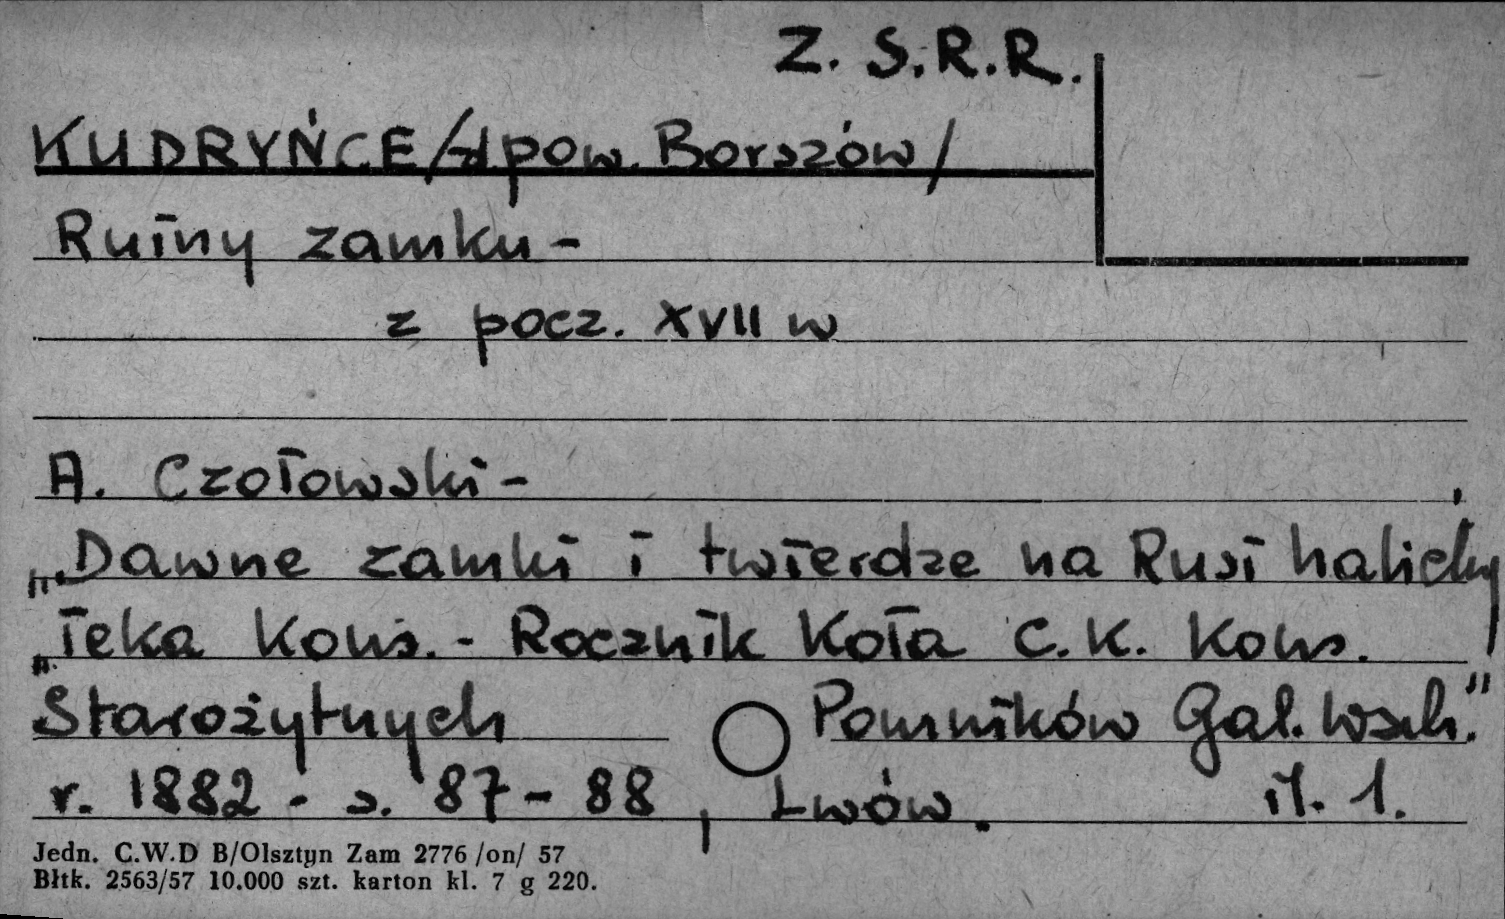 Z. S. R. R.
KUDRYŃCE / pow. Borszów /
Ruiny zamku -
z pocz. XVII w
A. Czołowski -
„Dawne zamki i twierdze na Rusi halickiej,
„Teka Kons. - Rocznik Koła C. K. Kons.
Starożytnych Pomników Gal. Wsch."
r. 1882 - s. 87 - 88, Lwów. il. 1.
Jedn. C.W.D B/Olsztyn Zam 2776 /on/ 57
Błtk. 2563/57 10.000 szt. karton kl. 7 g 220.